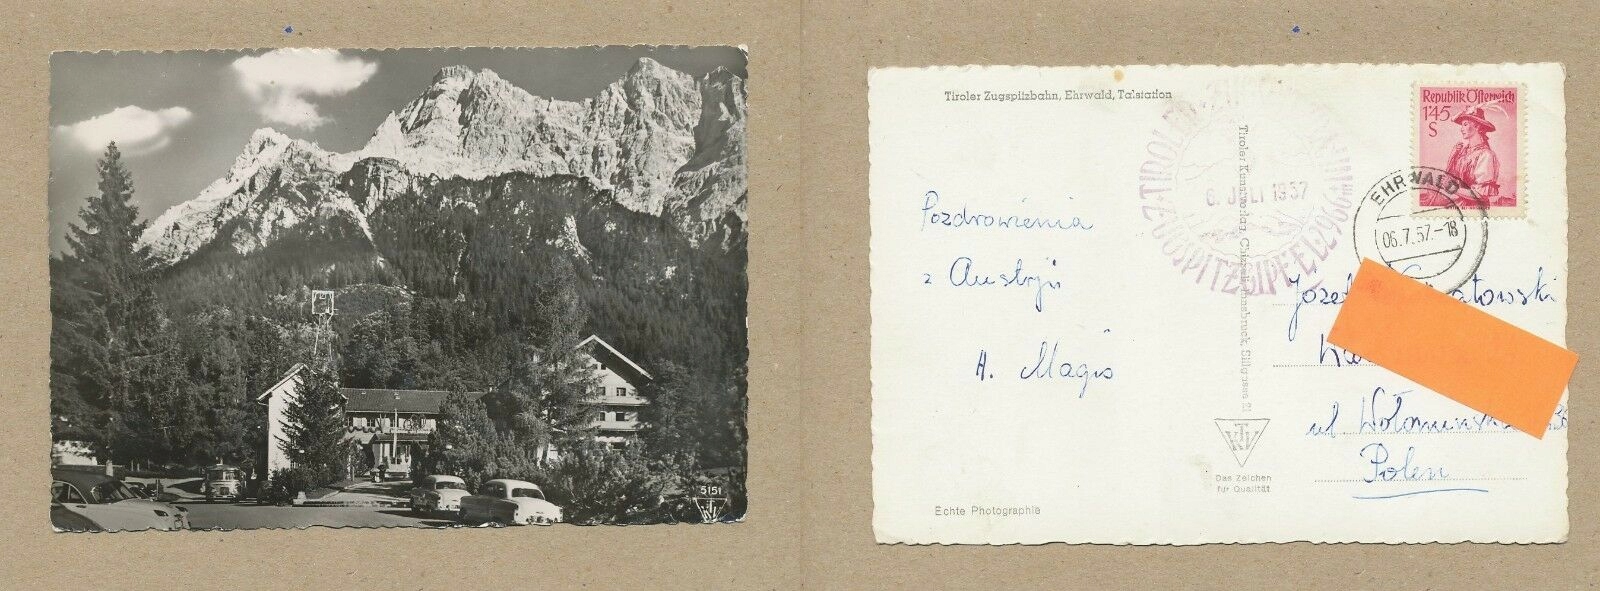 5151
Tiroler Zugspitzbahn, Ehrwald, Talstation
Pozdrowienia
z Austrji
H. Magis
Echte Photographie
6. JULI 1957
ZUGSPITZGIPFEL 2966 m
Tiroler Kunstverlag Innsbruck, Sillgasse 21
KTV
Das Zeichen
für Qualität
Republik Österreich
1'45
S
EHRWALD
06.7.57.-18
ul. Wołomińska
Polen